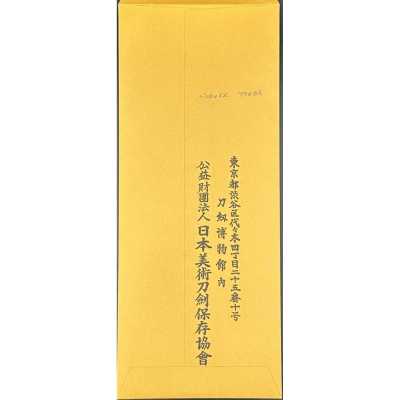 東京都渋谷区代々木四丁目二十五番十号
刀剣博物館内
公益財團法人 日本美術刀劍保存協會